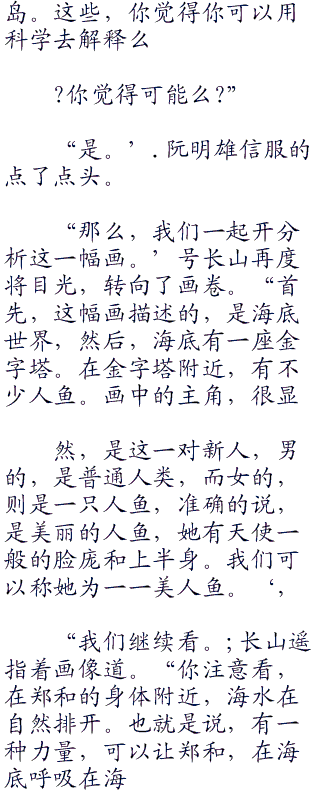 岛。这些，你觉得你可以用
科学去解释么
?你觉得可能么?”
“是。’．阮明雄信服的
点了点头。
“那么，我们一起开分
析这一幅画。’号长山再度
将目光，转向了画卷。“首
先，这幅画描述的，是海底
世界，然后，海底有一座金
字塔。在金字塔附近，有不
少人鱼。画中的主角，很显
然，是这一对新人，男
的，是普通人类，而女的，
则是一只人鱼，准确的说，
是美丽的人鱼，她有天使一
般的脸庞和上半身。我们可
以称她为一一美人鱼。‘，
“我们继续看。；长山遥
指着画像道。“你注意看，
在郑和的身体附近，海水在
自然排开。也就是说，有一
种力量，可以让郑和，在海
底呼吸在海